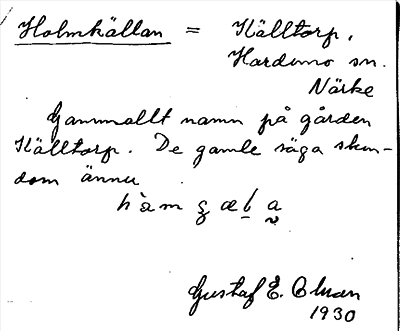 Holmkällan = Källtorp,
Hardemo sn.
Närke
Gammalt namn på gården
Källtorp. De gamle säga stun-
dom ännu
Gustaf E.
1930